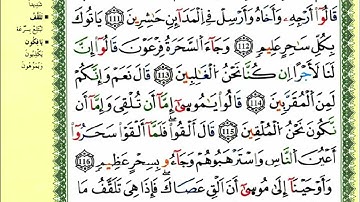 قَالُوٓاْ أَرْجِهْ وَأَخَاهُ وَأَرْسِلْ فِى ٱلْمَدَآئِنِ حَٰشِرِينَ ١١١ يَأْتُوكَ
بِكُلِّ سَٰحِرٍ عَلِيمٍ ١١٢ وَجَآءَ ٱلسَّحَرَةُ فِرْعَوْنَ قَالُوٓاْ إِنَّ
لَنَا لَأَجْرًا إِن كُنَّا نَحْنُ ٱلْغَٰلِبِينَ ١١٣ قَالَ نَعَمْ وَإِنَّكُمْ
لَمِنَ ٱلْمُقَرَّبِينَ ١١٤ قَالُواْ يَٰمُوسَىٰٓ إِمَّآ أَن تُلْقِىَ وَإِمَّآ أَن
نَّكُونَ نَحْنُ ٱلْمُلْقِينَ ١١٥ قَالَ أَلْقُواْ ۖ فَلَمَّآ أَلْقَوْاْ سَحَرُوٓاْ
أَعْيُنَ ٱلنَّاسِ وَٱسْتَرْهَبُوهُمْ وَجَآءُو بِسِحْرٍ عَظِيمٍ ١١٦
وَأَوْحَيْنَآ إِلَىٰ مُوسَىٰٓ أَنْ أَلْقِ عَصَاكَ ۖ فَإِذَا هِىَ تَلْقَفُ مَا
شديداً
• تَلْقَفُ
تبتلع بسرعة
• يَأْفِكُونَ
ويموّهون